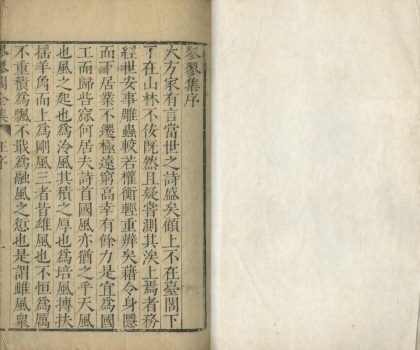 翏翏集序
大方家有言當世之詩盛矣顧上不在臺閣下
不在山林不佞旣然且疑嘗測其涘上焉者務
經世安事雕蟲較若權衡輕重辨矣藉令身隱
于居業不遷極遠窮高幸有餘力是宜爲國
工而歸呰窳何居夫詩首國風亦猶之乎天風
也風之起也爲泠風其積之厚也爲培風摶扶
搖羊角而上爲剛風三者皆雄風也不恒爲厲
不重積爲飄不戢爲融風之愆也是謂雌風衆
翏翏閣全集
汪序
一